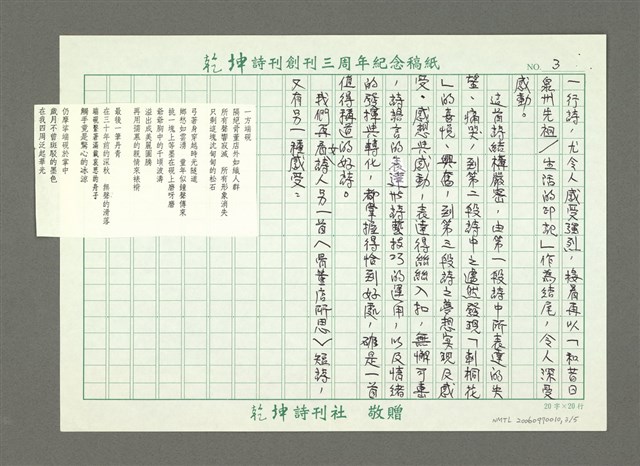 乾坤詩刊創刊三周年紀念稿紙
NO. 3
一行詩，尤令人感受強烈，接着再以「和昔日
泉州先祖／生活的印記」作為結尾，令人深受
感動。
這首詩結構嚴密，由第一段詩中所表達的失
望、痛哭，到第二段詩中之遽然發現「刺桐花
」的喜悅、興奮，到第三段詩之夢想實現及感
受、感想與感動，表達得絲絲入扣，無懈可擊
，詩語言的表達與詩藝技巧的運用，以及情緒
的發揮與轉化，都掌握得恰到好處，確是一首
值得稱道的好詩。
我們再看詩人另一首〈骨董店所思〉短詩，
又有另一種感受：
一方端硯
隔視骨董店外如織人群
所有聲響寂滅 所有形象消失
只剩這塊沈甸甸的松石
弓著身穿越時光隧道
鄉愁如雲湧 童年似鐘聲傳來
挑一塊上等墨在硯上磨呀磨
爺爺胸中的千頃波濤
溢出成美麗圖騰
再用擱置的親情來裱褙
最後一筆丹青
在三十年前的深秋 無聲的滑落
藉硯繫著滿載哀思的身子
觸手竟是驚心的冰涼
仍摩挲端硯於掌中
歲月不曾斑駁的墨色
在我四周泛起華光
乾坤詩刊社 敬贈
20字×20行
NMTL 20060990010, 3/5